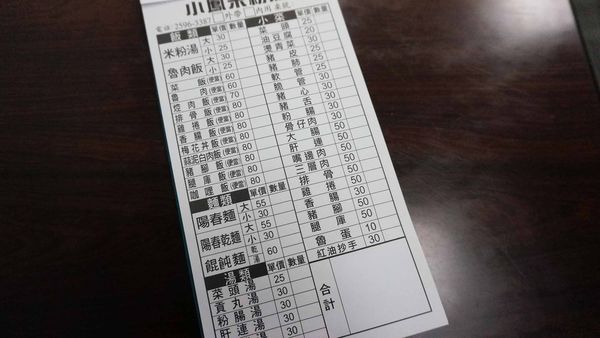 小鳳米粉湯
電話:2596-3387 外帶 內用 桌號
飯類 單價 數量
米粉湯 大 30
小 25
魯肉飯 大 30
小 25
菜飯(便當) 60
魯肉飯(便當) 60
焢肉飯(便當) 70
排骨飯(便當) 80
雞捲飯(便當) 80
香腸飯(便當) 80
梅花丼飯(便當) 80
蒜泥白肉飯(便當) 80
豬腳飯(便當) 80
腿庫飯(便當) 80
咖哩飯(便當) 80
麵類 單價 數量
陽春麵 大 55
小 30
陽春乾麵 大 55
小 30
餛飩麵 乾 湯 60
湯類 單價 數量
菜頭湯 25
貢丸湯 30
粉腸湯 30
肝連湯 30
小菜 單價 數量
菜頭 25
油豆腐 20
燙青菜 30
豬皮 25
豬肺 25
軟管 30
脆管 30
豬心 30
豬舌 30
粉腸 30
骨仔肉 30
大腸 50
肝連 50
嘴邊肉 50
三層肉 50
排骨 50
雞捲 50
香腸 30
豬腳 50
腿庫 50
魯蛋 10
紅油抄手 30
合計